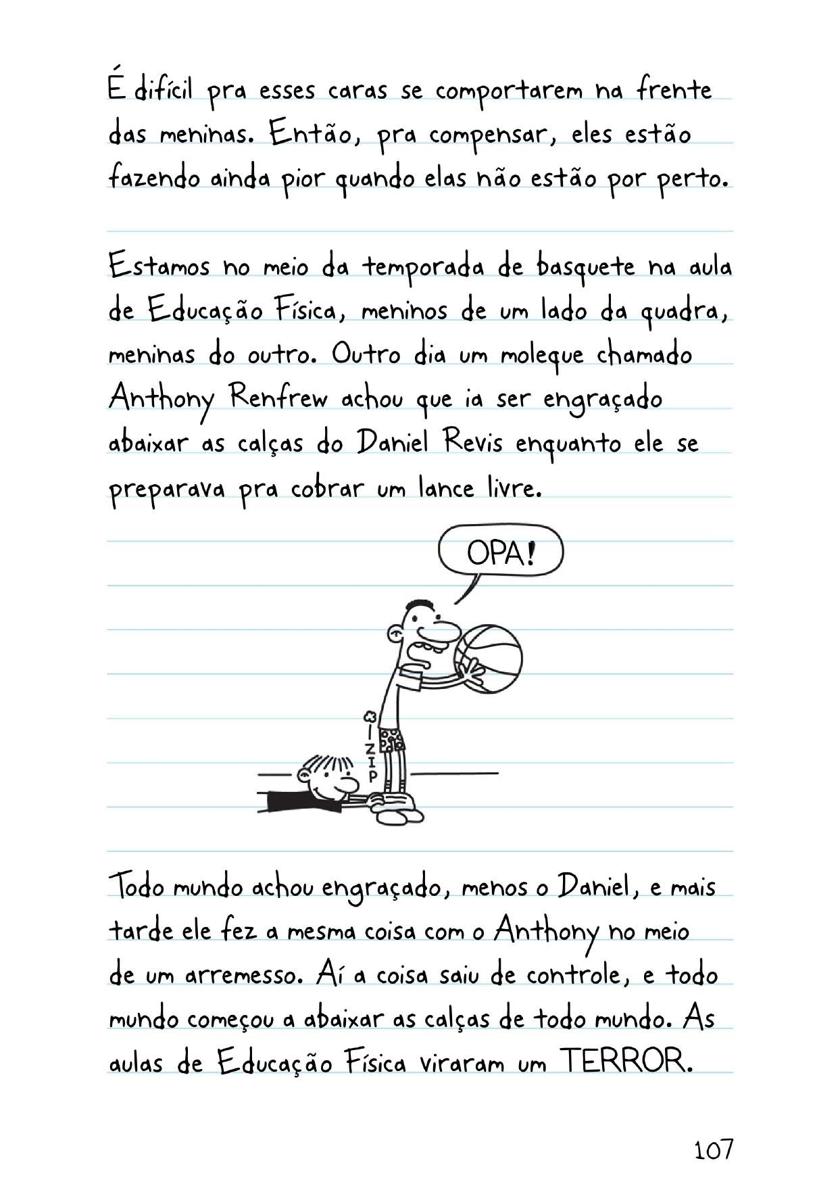 É difícil pra esses caras se comportarem na frente
das meninas. Então, pra compensar, eles estão
fazendo ainda pior quando elas não estão por perto.
Estamos no meio da temporada de basquete na aula
de Educação Física, meninos de um lado da quadra,
meninas do outro. Outro dia um moleque chamado
Anthony Renfrew achou que ia ser engraçado
abaixar as calças do Daniel Revis enquanto ele se
preparava pra cobrar um lance livre.
OPA!
ZIP
Todo mundo achou engraçado, menos o Daniel, e mais
tarde ele fez a mesma coisa com o Anthony no meio
de um arremesso. Aí a coisa saiu de controle, e todo
mundo começou a abaixar as calças de todo mundo. As
aulas de Educação Física viraram um TERROR.
107